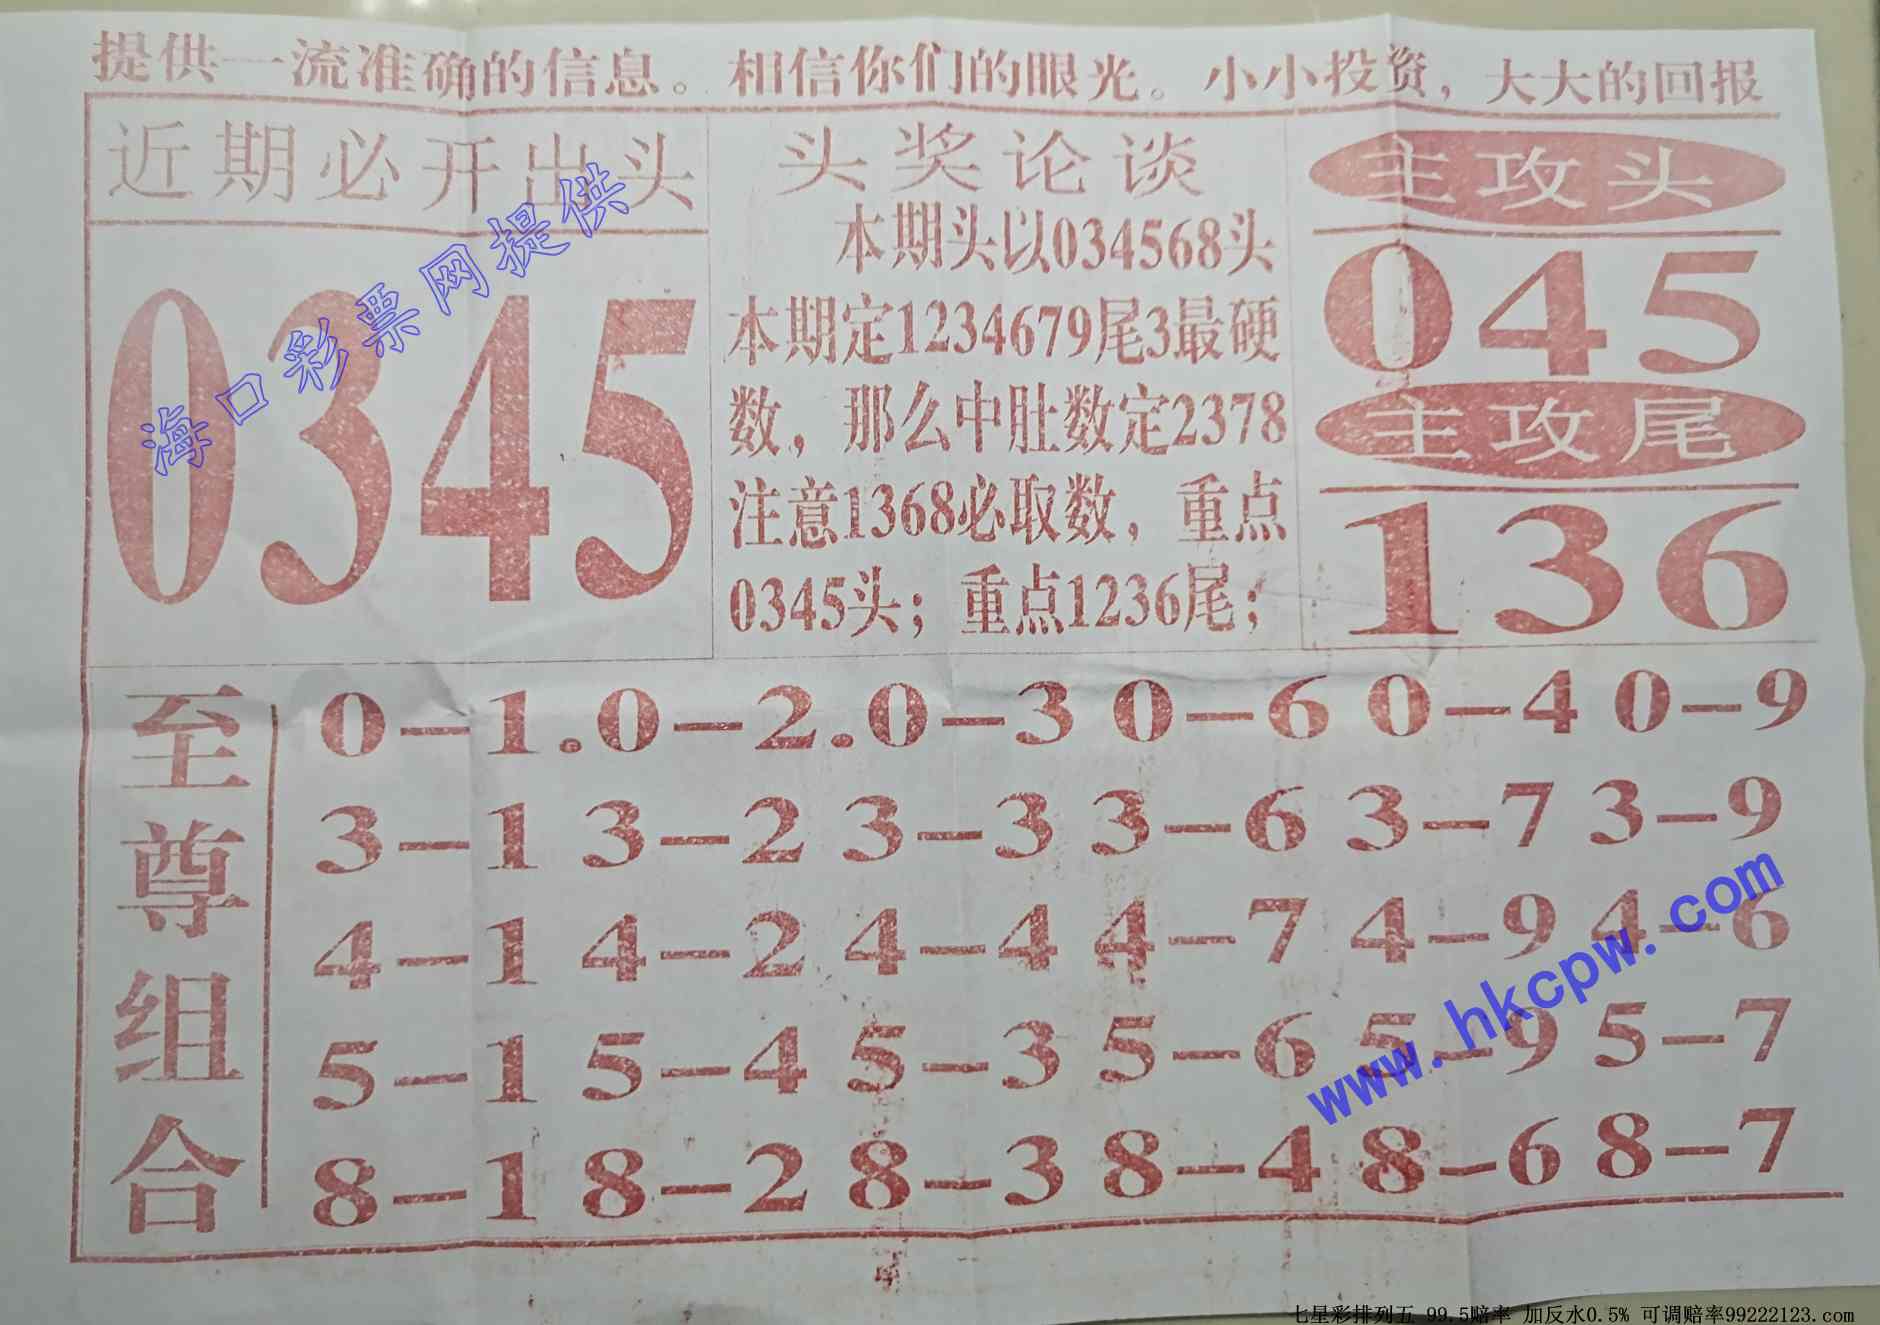 提供一流准确的信息。相信你们的眼光。小小投资，大大的回报
近期必开出头
0345
头奖论谈
本期头以034568头
本期定1234679尾3最硬
数，那么中肚数定2378
注意1368必取数，重点
0345头；重点1236尾；
主攻头
045
主攻尾
136
至尊组合
0-1.0-2.0-3 0-6 0-4 0-9
3-1 3-2 3-3 3-6 3-7 3-9
4-1 4-2 4-4 4-7 4-9 4-6
5-1 5-4 5-3 5-6 5-9 5-7
8-1 8-2 8-3 8-4 8-6 8-7
海口彩票网提供
www.hkcpw.com
七星彩排列五 99.5赔率 加反水0.5% 可调赔率99222123.com